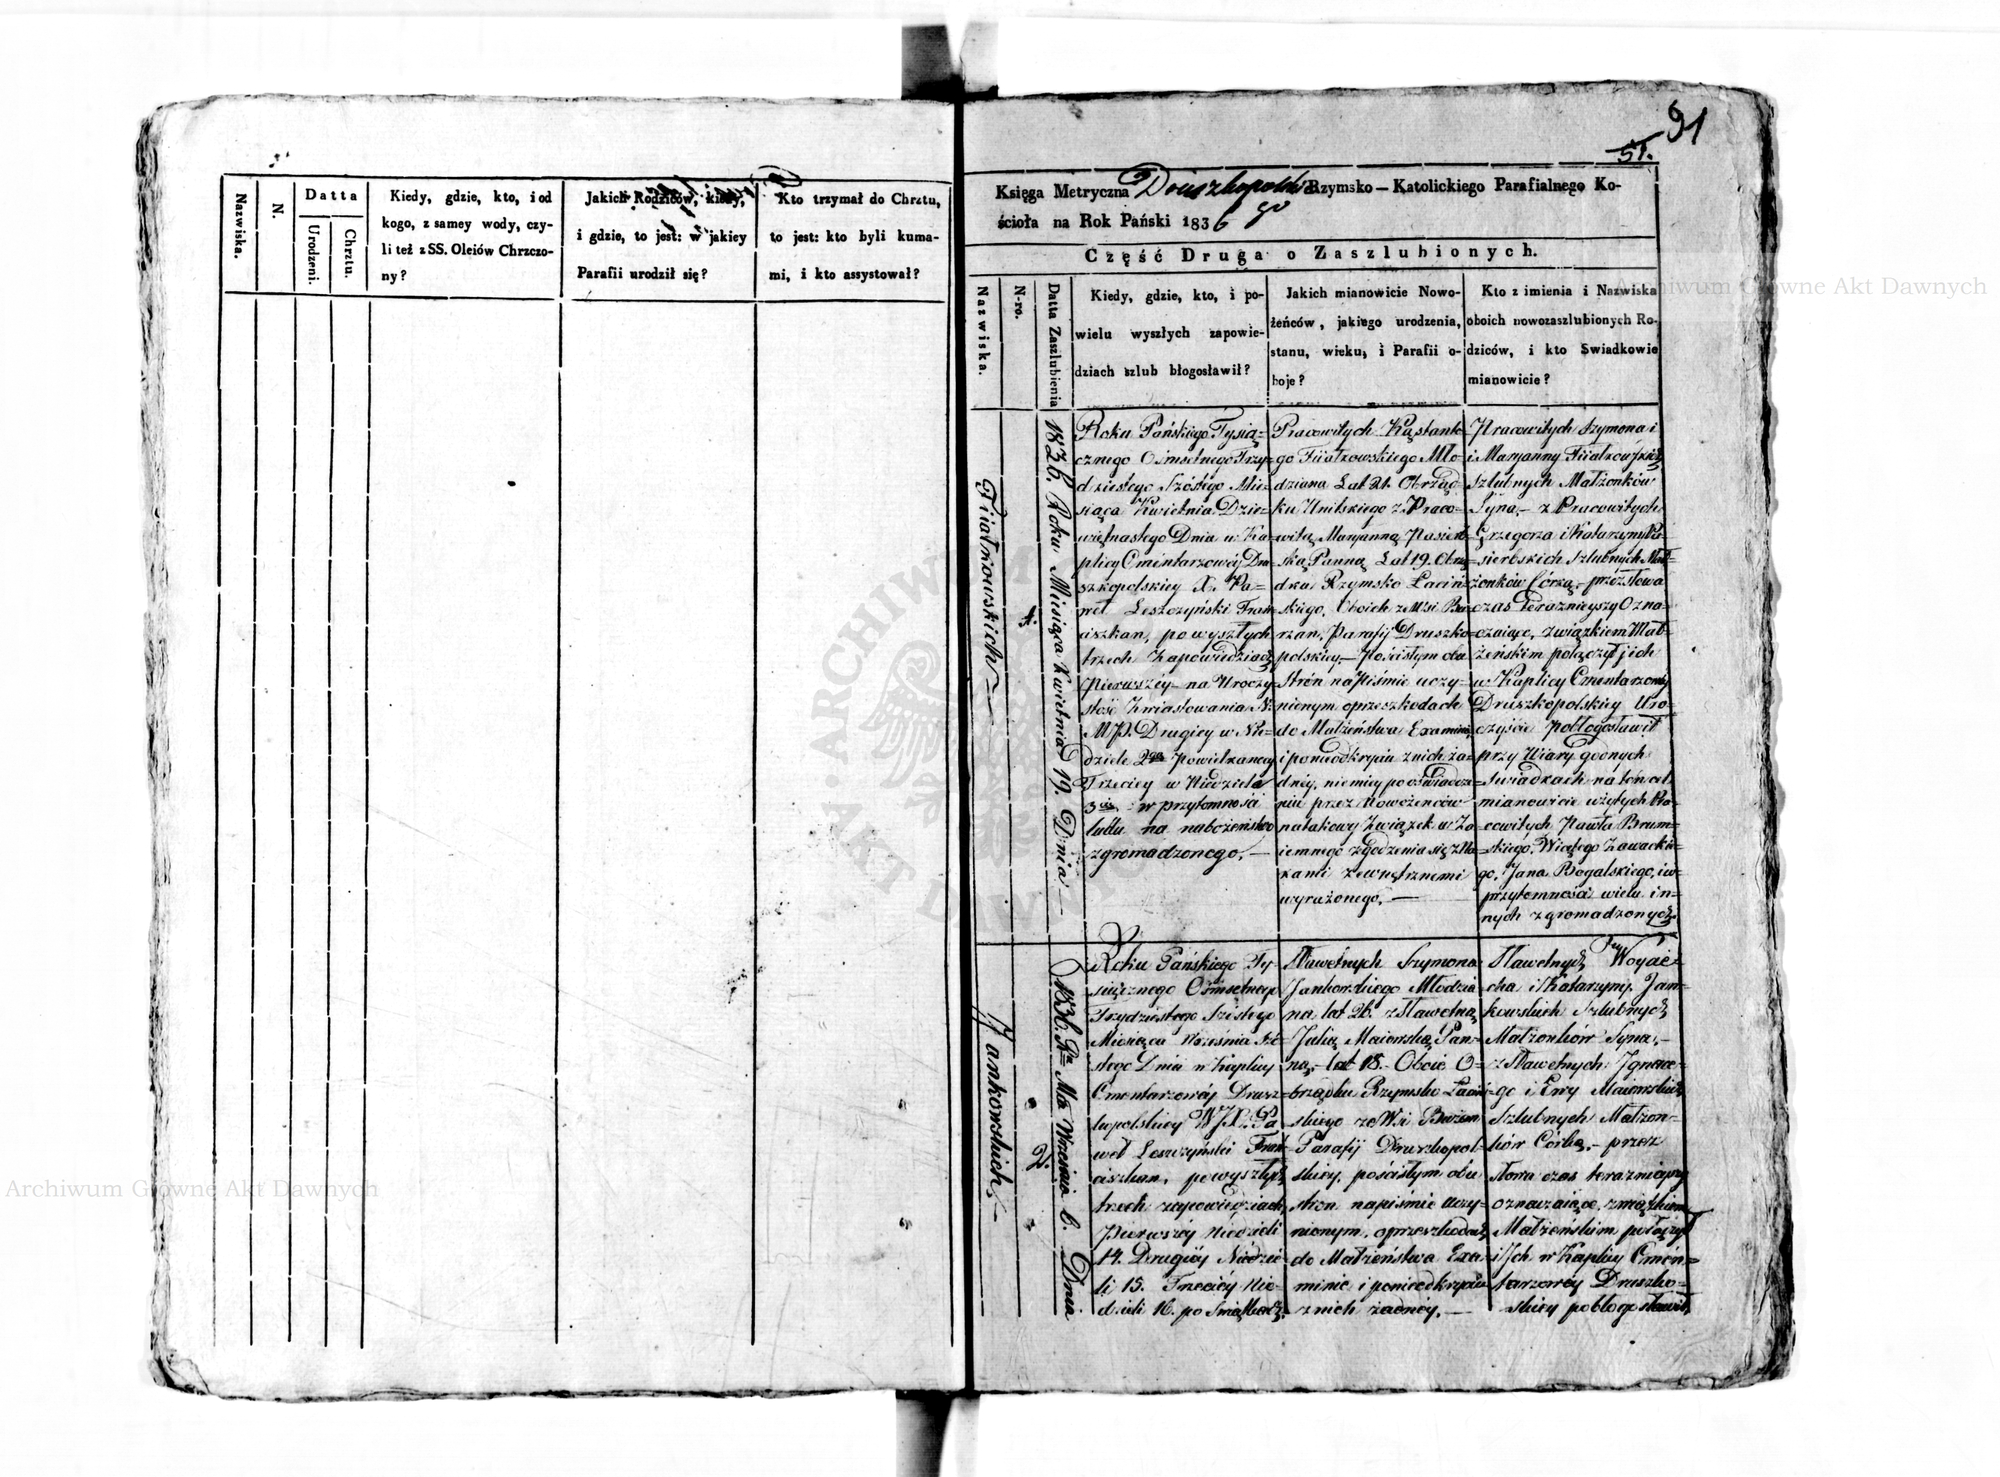 91
51.
Nazwiska.
N.
Datta
Urodzeni.
Chrztu.
Kiedy, gdzie, kto, i od
kogo, z samey wody, czy-
li też z SS. Oleiów Chrzczo-
ny?
Jakich Rodziców, kiedy,
i gdzie, to jest: w jakiey
Parafii urodził się?
Kto trzymał do Chrztu,
to jest: kto byli kuma-
mi, i kto assystował?
Księga Metryczna Druszkopolska Rzymsko-Katolickiego Parafialnego Ko-
ścioła na Rok Pański 1836 go
Część Druga o Zaszlubionych.
Nazwiska.
N-ro.
Datta Zaszlubienia
Kiedy, gdzie, kto, i po-
wielu wyszłych zapowie-
dziach szlub błogosławił?
Jakich mianowicie Nowo-
żeńców, jakiego urodzenia,
stanu, wieku, i Parafii o-
boje?
Kto z imienia i Nazwiska
oboich nowozaszlubionych Ro-
dziców, i kto Swiadkowie
mianowicie?
Fijałkowskich
1.
1836. Roku Miesiąca Kwietnia 19. Dnia
Roku Pańskiego Tysią=
cznego Ośmsetnego Trzy=
dziestego Szóstego Mie=
siąca Kwietnia Dzie=
więtnastego Dnia w Ka=
plicy Cmentarzowéy Dru
szkopolskiey X. Pa=
weł Leszczyński Fran
ciszkan, po wyszłych
trzech Zapowiedziach
Pierwszey na Uroczy
stość Zwiastowania N.
M. P. Drugiey w Nie=
dziele 2gą Powielkanocną
Trzeciey w Niedziele
3cią w przytomności
ludu na nabożeństwo
zgromadzonego.
Pracowitych Konstante=
go Fijałkowskiego Mło=
dziana Lat 21. Obrząd=
ku Unitskiego z Praco=
witą Maryanną Pasierb=
ską Panną Lat 19. Obrzą=
dku Rzymsko Łaciń=
skiego, Oboich ze Wsi Bu
rzan, Parafij Druszko=
polskiey, Pościsłym obu
Strón na piśmie uczy=
nionym o przeszkodach
do Małżeństwa Examinie,
i po nieodkryciu z nich ża=
dnéy, niemiey po oświadcze=
niu przez Nowożeńców
na takowy Związek w Za
iemnego zgodzenia się zna=
kami zewnętrznemi
wyrażonego.
Pracowitych Szymona i
i Maryanny Fijałkowskich
Szlubnych Małżonków
Syna, z Pracowitych
Grzegorza i Katarzyny Pa=
sierbskich Szlubnych Mał=
żonków Córką, przez słowa
czas teraznieyszy Ozna=
czaiące, związkiem Mał=
żeńskim połączył jich
w Kaplicy Cmentarzowéy
Druszkopolskiey Uro=
czyście Pobłogosławił
przy Wiary godnych
świadkach na ten cel
mianowicie wziętych Pra=
cowitych Pawła
skiego, Zawackie=
go, Jana Rogalskiego, i w
przytomności wielu in=
nych zgromadzonych.
Jankowskich.
2.
1836. Ru Mca Wrześnio 6. Dnia
Roku Pańskiego Ty=
siącznego Ośmsetnego
Trzydziestego Szóstego
Miesiąca Września Szó=
stego Dnia w Kaplicy
Cmentarzowéy Drusz=
kopolskiey WJX. Pa
weł Leszczyński Fran
ciszkan, po wyszłych
trzech zapowiedziach
Pierwszéy Niedzieli
14. Drugiéy Niedzie=
li 15. Trzeciéy Nie=
dzieli 16. po Świątkach,
Sławetnych Szymona
Jankowskiego Młodzia
na lat 26. z Sławetną
Julią Maiewską Pan=
ną, lat 18. Oboie O=
brządku Rzymsko Łaciń=
skiego ze Wsi Burzan
Parafij Druszkopol=
skiey, pościsłym obu
stron na piśmie uczy=
nionym, o przeszkodach
do Małżeństwa Exa=
minie i po nieodkryciu
z nich żadnéy.
Sławetnych Woycie=
cha i Katarzyny Jan=
kowskich Szlubnych
Małżonków Syna,
z Sławetnych Ignace=
go i Ewy Maiewskich
Szlubnych Małżon=
ków Córką, przez
słowa czas teraznieyszy
oznaczaiące, związkiem
Małżeńskim połączył
i Ich w Kaplicy Cmén=
tarzowéy Druszko=
skiey pobłogosławił,
Archiwum Główne Akt Dawnych
Archiwum Główne Akt Dawnych
ARCHIWUM
AKT DAWNYCH